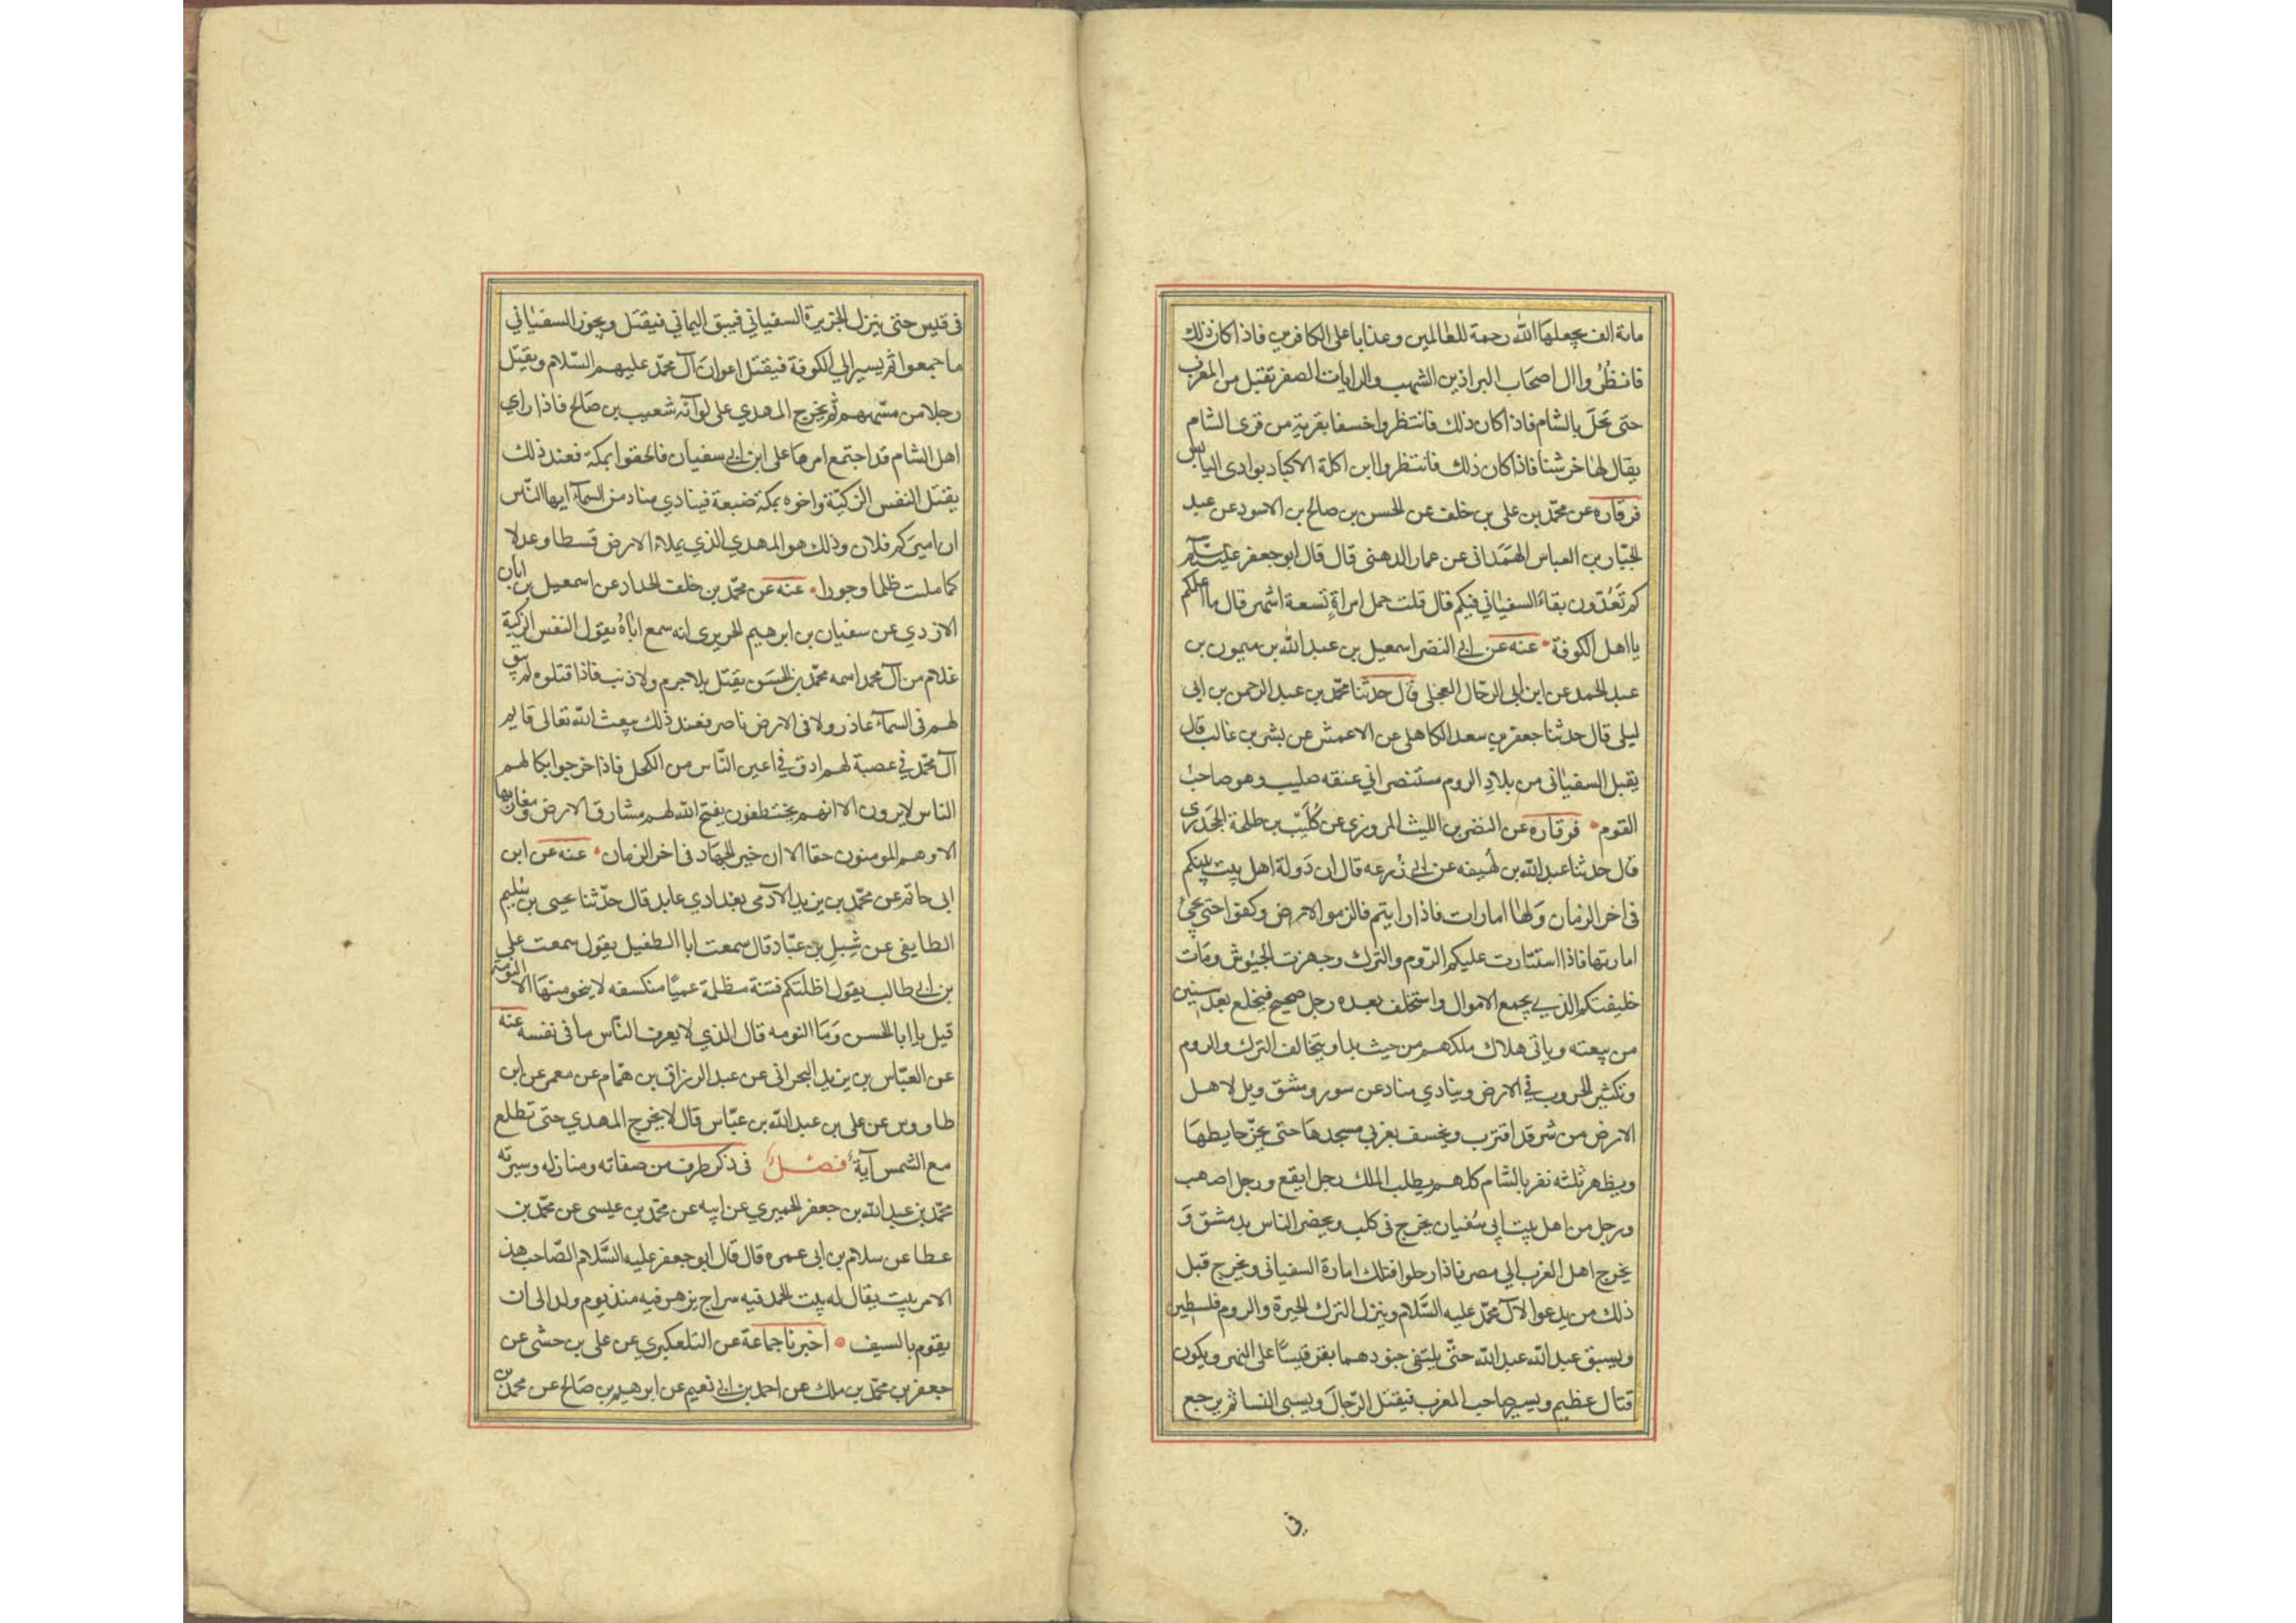 مائة الف يجعلها الله رحمة للعالمين وعذابا على الكافرين فاذا كان ذلك
فانظُرُوا الى اصحاب البراذين الشهب والرايات الصفر تقبل من المغرب
حتى تحلّ بالشام فاذا كان ذلك فانتظروا خسفا بقرية من قرى الشام
يقال لها خرشنا فاذا كان ذلك فانتظروا ابن اكلة الاكباد بوادى اليابس
قرقاره عن محمّد بن على بن خلف عن الحسن بن صالح بن الاسود عن عبد
الجبّار بن العباس الهمَدانى عن عمار الدهنى قال قال ابو جعفر عليه السّلم
كم تعُدّون بقاء السفياني فيكم قال قلت حمل امراةٍ تسعة اشهر قال ما اعلمكم
يا اهل الكوفة عنه عن ابي النضر اسمعيل بن عبد الله بن ميمون بن
عبد الحمد عن ابن ابى الرحّال العجلى قال حدثنا محمّد بن عبد الرحمن بن ابى
ليلى قال حدثنا جعفر بن سعد الكاهلى عن الاعمش عن بشر بن غالب قال
يقبل السفيانى من بلاد الروم مستنصرا في عنقه صليب وهو صاحب
القوم قرقاره عن النضر بن الليث المروزى عن كُلَيب بن طلحة الجحدرى
قال حدثنا عبد الله بن لهُيفه عن ابي زُرعه قال ان دَولة اهل بيت نبيكم
فى اخر الزمان ولها امارات فاذا رايتم فالزموا الارض وكفوا حتى يجئ
امارتها فاذا استثارت عليكم الرّوم والترك وجهزت الجيوش ومات
خليفتكم الذي يجمع الاموال واستخلف بعده رجل صحيح فيخلع بعد سنين
من بيعته وياتى هلاك ملكهم من حيث بدا ويتخالف الترك والروم
وتكثر الحروب في الارض وينادي مناد عن سور ومشق ويل لاهل
الارض من شر قد اقترب ويخسف بغربي مسجدها حتى يخرّ حايطها
ويظهر ثلثه نفر بالشام كلهم يطلب الملك رجل ابقع ورجل اصهب
ورجل من اهل بيت ابى سُفيان يخرج فى كلب ويحضر الناس بدمشق وَ
يخرج اهل الغرب الي مصر فاذا رحلوا فتلك امارة السفيانى ويخرج قبل
ذلك من يدعوا لآل محمّد عليه السَّلام وينزل الترك الحيرة والروم فلسطين
ويسبق عبد الله عبد الله حتّى يلتقى جنودهما بقرقيسا على النهر ويكون
قتال عظيم ويسير صاحب المغرب فيقتل الرّجال ويسبى النسا ثم يرجع
في
فى قيس حتى ينزل الجزيرة السفياني فيسبق اليماني فيقتل ويحوز السفياني
ما جمعوا ثم يسير الي الكوفة فيقتل اعوان آل محمّد عليهم السّلام ويقتل
رجلا من مسّميهم ثم يخرج المهدي على لوآئه شعيب بن صَالح فاذا راي
اهل الشام قد اجتمع امرها على ابن ابي سفيان فالحقوا بمكة فعند ذلك
يقتل النفس الزكيّة واخوه بمكة ضيعة فينادي مناد من السمآء ايها النّاس
ان اميركم فلان وذلك هو المهدي الذي يملاء الارض قسطا وعدلا
كما ملت ظلما وجورا عنه عن محمّد بن خلف الحداد عن اسمعيل بن ابان
الازدي عن سفيان بن ابرهيم الحريرى انه سمع اباهُ يقول النفس الزكية
غلام من آل محمد اسمه محمّد بن الحسَن يقتل بلا جرم ولا ذنب فاذا قتلوه لم يبق
لهم فى السمآء عاذر ولا فى الارض ناصر فعند ذلك يبعث الله تعالى قايم
آل محمّد في عصبة لهم ادق في اعين النّاس من الكحل فاذا خرجوا بكا لهم
الناس لا يرون الا انهم يختطفون يفتح الله لهم مشارق الارض ومغاربها
الا وهم المومنون حقا الا ان خير الجهاد فى اخر الزمان عنه عن ابن
ابى حاتم عن محمّد بن يزيد الآدمى بغدادي عابد قال حدّثنا يحيى بن سُليم
الطايفى عن شِبل بن عبّاد قال سمعت ابا الطفيل يقول سمعت علي
بن ابي طالب يقول اظلتكم فتنة مظلة عميّا منكسفه لا ينجو منها الا النومة
قيل يا ابا الحسن وَمَا النومه قال الذي لا يعرف الناس ما فى نفسه عنه
عن العبّاس بن يزيد البحرانى عن عبد الرزاق بن همّام عن معمر عن ابن
طاووس عن على بن عبد الله بن عبّاس قال لا يخرج المهدي حتى تطلع
مع الشمس آية فصل فى ذكر طرف من صفاته ومنازله وسيرته
محمّد بن عبد الله بن جعفر الحميري عن ابيه عن محمّد بن عيسى عن محمّد بن
عطا عن سلام بن ابى عمره قال قال ابو جعفر عليه السَّلام الصّاحب هذ
الامر بيت يقال له بيت الحمد فيه سراج يزهر فيه منذ يوم ولد الى ان
يقوم بالسيف اخبرنا جماعة عن التلعكبري عن على بن حشى عن
جعفر بن محمّد بن ملك عن احمد بن ابي نعيم عن ابرهيم بن صَالح عن محمّد بن